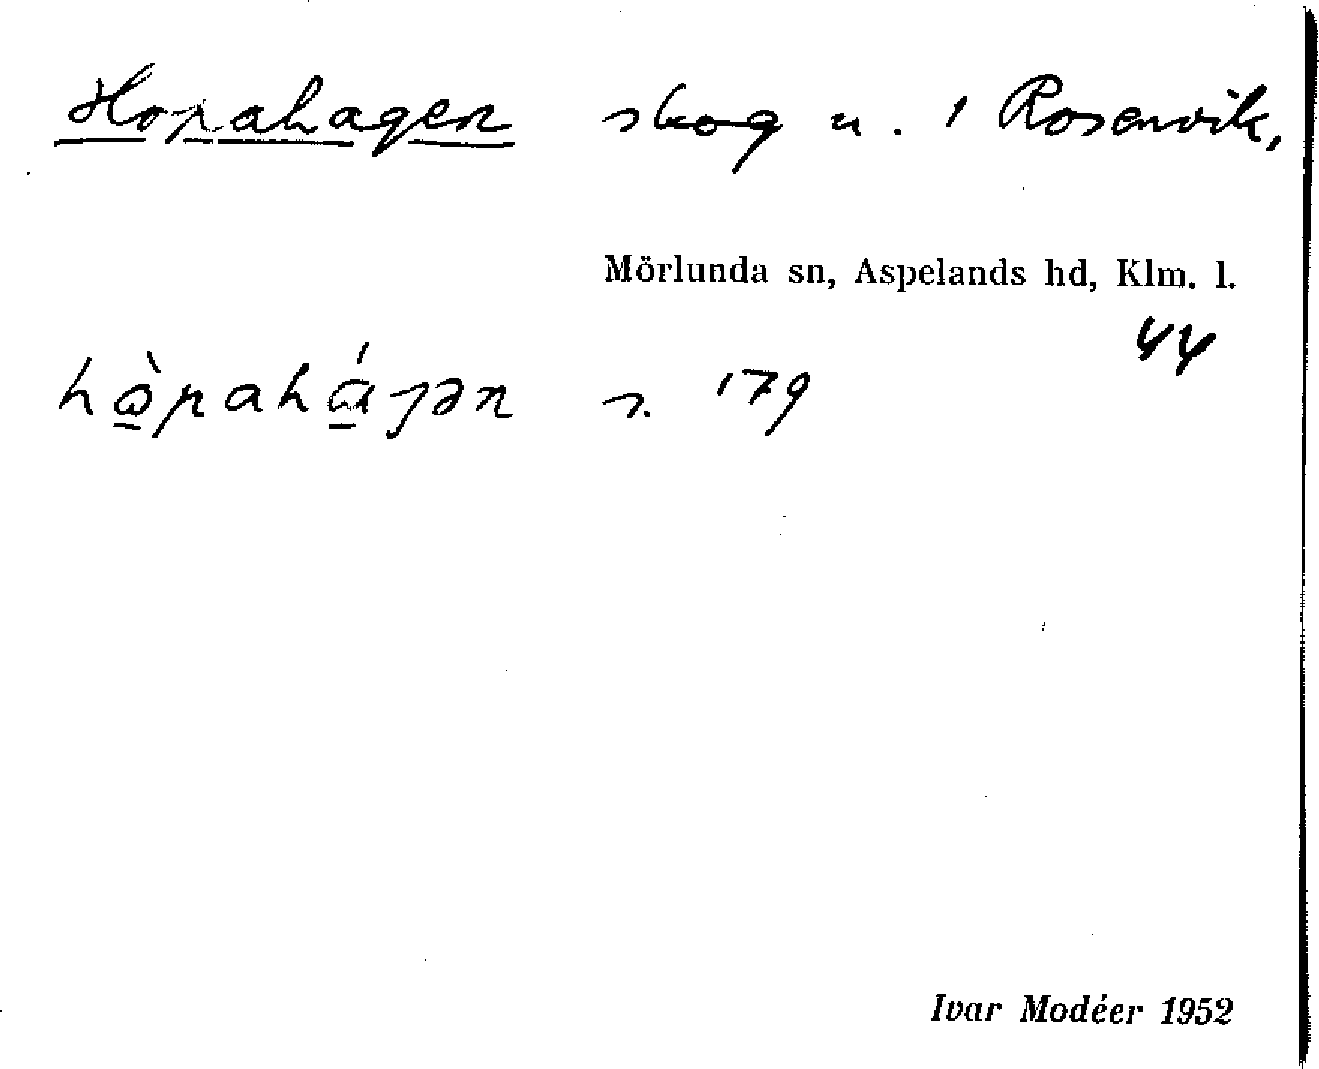 Hopahagen skog u. 1 Rosenvik,
Mörlunda sn, Aspelands hd, Klm. l.
44
s. 179
Ivar Modéer 1952